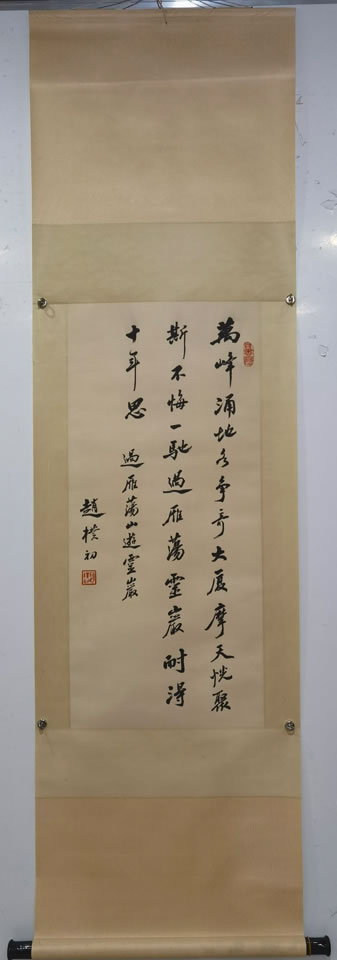 萬峰涌地各爭奇大厦摩天恍聚
斯不悔一馳過雁蕩靈巖耐得
十年思
過雁蕩山遊靈巖
趙樸初